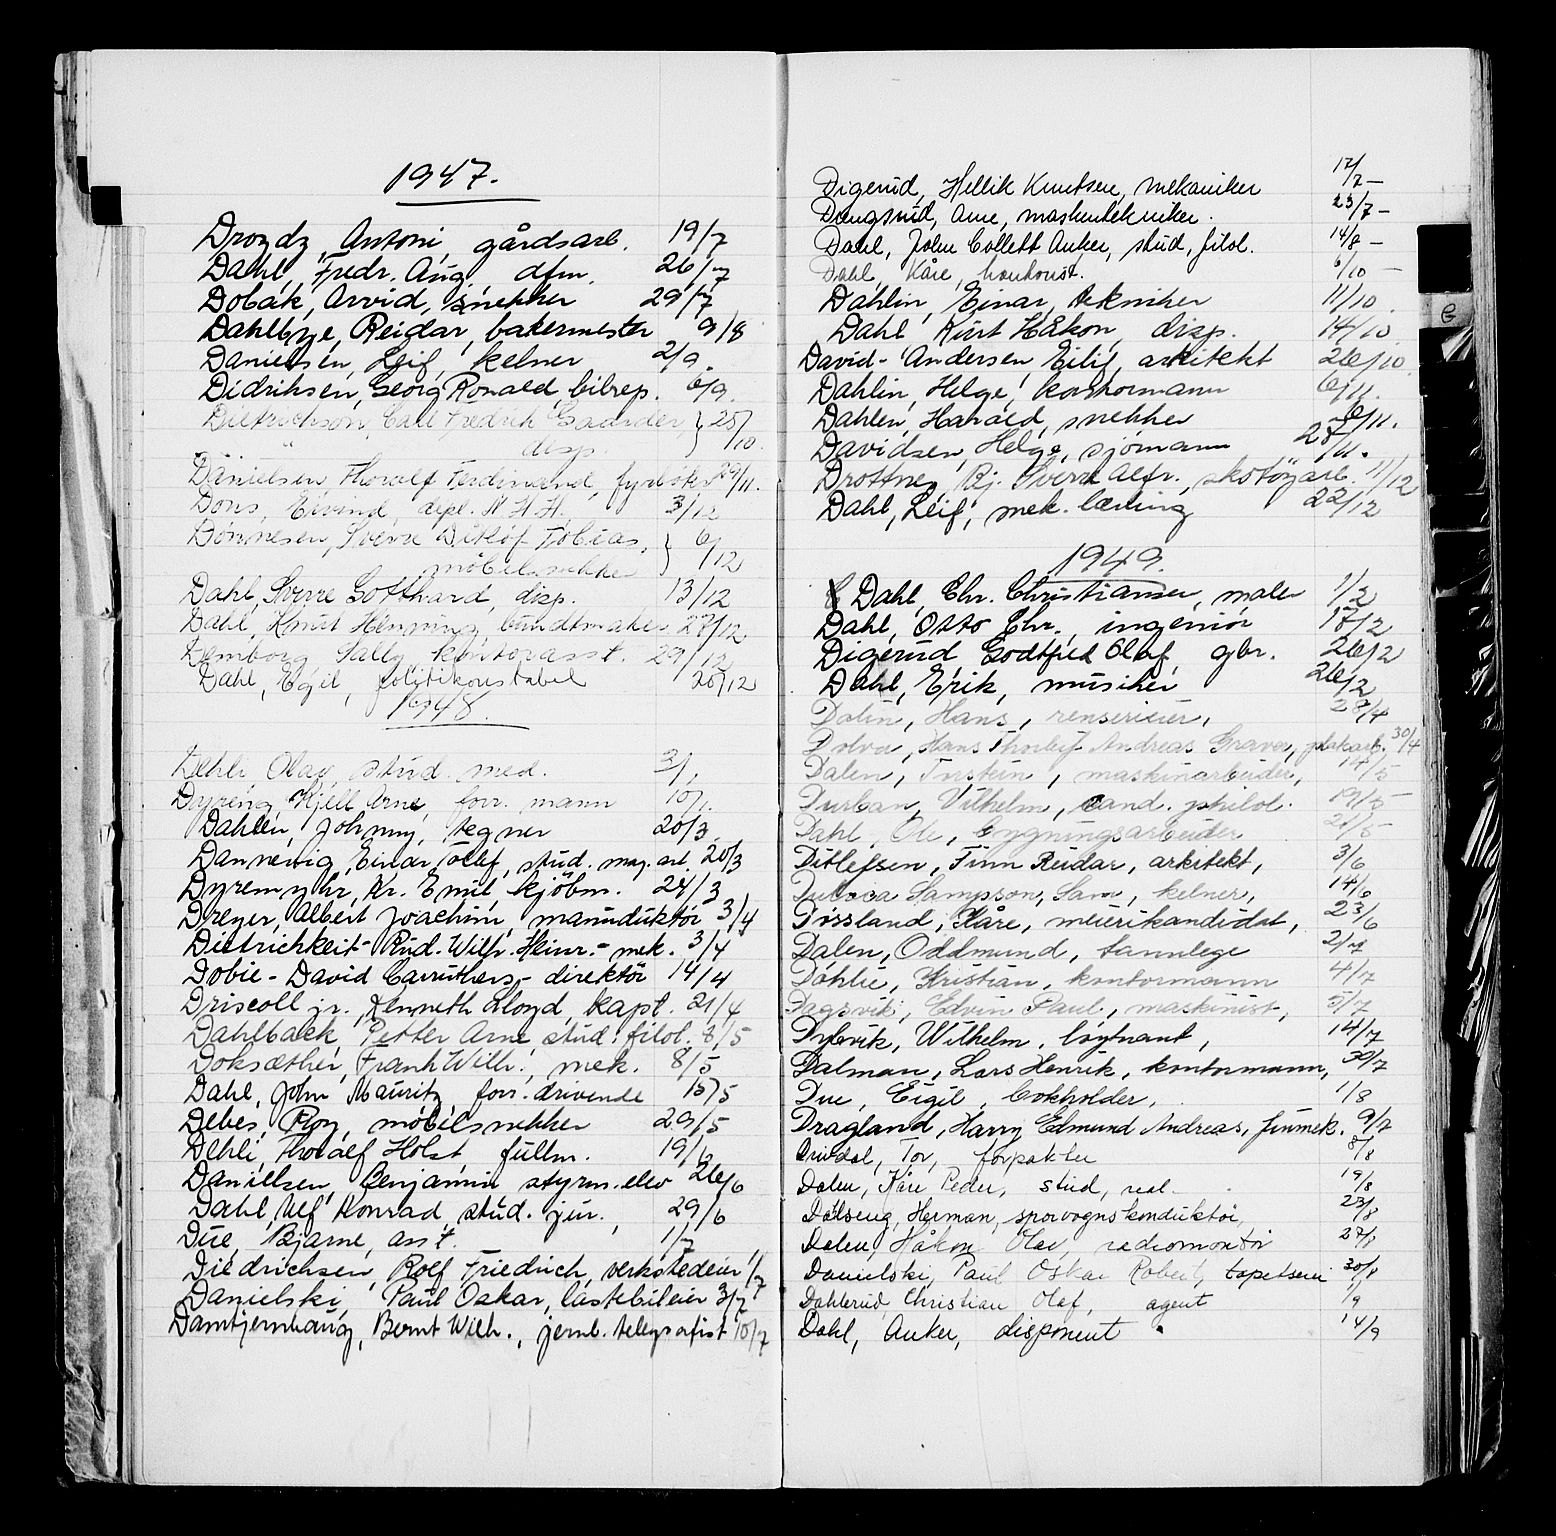 1947.
Drozdz, Antoni, gårdsarb. 19/7
Dahl, Fredr. Aug. dfm. 26/7
Dobák, Arvid, snekker 29/7
Dahlbye, Reidar, bakermester 9/8
Danielsen, Leif, kelner 2/9.
Didriksen, Georg Ronald, bilrep. 6/9.
Dietrichson, Carl Fredrik } 25/10.
disp.
Danielsen, Thoralf Ferdinand, fyrbøter 29/11.
Dons, Eivind, dipl. N.H.H. 3/12
Dønnesen, Sverre Ditlöf Tobias, } 6/12
møbelsnekker
Dahl, Sverre Gotthard, disp. 13/12
Dahl, Knut Henning, bundtmaker 27/12
Demborg Sally kontorasst. 29/12
Dahl, Egil, politikonstabel 20/12
1948.
Dehli, Olav, stud. med. 3/1
Dyreng, Kjell Arne, forr. mann 10/1.
Dahlen, Johnny, tegner 20/3.
Dannevig, Einar Tollef, stud. mag. art. 20/3
Dyremyhr, Kr. Emil, kjøbm. 24/3
Dreyer, Albert Joachim, manuduktør 3/4
Dietrichkeit - Rud. Wilh. Heinr. - mek. 3/4
Dobie - David Carruthers - direktør 14/4
Driscoll jr., Kenneth Lloyd, kapt. 21/4
Dahlback, Petter Arne, stud. filol. 8/5
Doksæther, Frank Wilh., mek. 8/5
Dahl, John Mauritz, forr. drivende 15/5
Debes, Roy, møbelsnekker 29/5
Dehli, Thoralf Holst, fullm. 19/6
Daniellsen, Benjamin styrm.elev 26/6
Dahl, Ulf Konrad, stud. jur., 29/6
Due, Bjarne, asst. 1/7
Diedrichsen, Rolf Friedrich, verkstedeier 1/7
Danielski, Paul Oskar, lastebileier 3/7
Damtjernhaug, Bernt Wilh., jernb. telegrafist 10/7
Digerud, Hellik Knutsen, mekaniker 17/7 -
Dungsrud, Arne, maskintekniker. 23/7 -
Dahl, John Collett Anker, stud. filol. 14/8 -
Dahl, Kåre, 6/10 -
Dahlin, Einar, tekniker 11/10.
Dahl, Kurt Håkon, disp. 14/10
David-Andersen, Eilif, arkitekt 26/10.
Dahlin, Helge, kontormann 6/11.
Dahlen, Harald, snekker 6/11.
Davidsen, Helge, sjømann 27/11.
Drottner, Bj. Sverre Alfr., skotøyarb. 11/12
Dahl, Leif, mek. lærling 22/12
1949.
Dahl, Chr. Christiansen, maler 1/2
Dahl, Otto Chr., ingeniør 17/2
Digerud Godtfred Olaf, gbr. 26/2
Dahl, Erik, musiker 26/2
Dalin, Hans, renserieier, 28/4
Dolva, Hans Thorleif Andreas Graver, plakarb. 30/4
Dalen, Torstein, maskinarbeider, 14/5
Durban, Vilhelm, cand. philol. 19/5 -
Dahl, Ole, bygningsarbeider 21/5 -
Ditlefsen, Finn Reidar, arkitekt, 3/6
Sampson, Sam, kelner, 14/6
Døssland, Kåre, meierikandidat, 23/6
Dalen, Oddmund, tannlege 2/7
Døhlie, Kristian, kontormann 4/7
Dagsvik, Edvin Paul, maskinist, 5/7
Dybvik, Wilhelm, løytnant, 14/7
Dalman, Lars Henrik, kontormann, 30/7
Due, Eigil, bokholder, 1/8
Dragland, Harry Edmund Andreas, finmek. 9/7
Drivdal, Tor, forpakter 8/8
Dalen, Kåre Peder, stud. real. 19/8
Dalseng, Herman, sporvognskonduktør, 23/8
Dalen, Håkon Olav, radiomontør 27/8
Danielski, Paul Oskar Robert, tapetserer 30/8
Dahlerud, Christian Olaf, agent 1/9
Dahl, Anker, disponent. 14/9
G